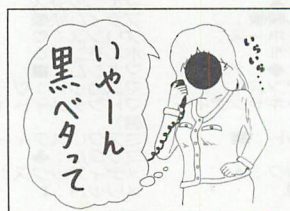 いやーん
黒ベタって
いらいら…